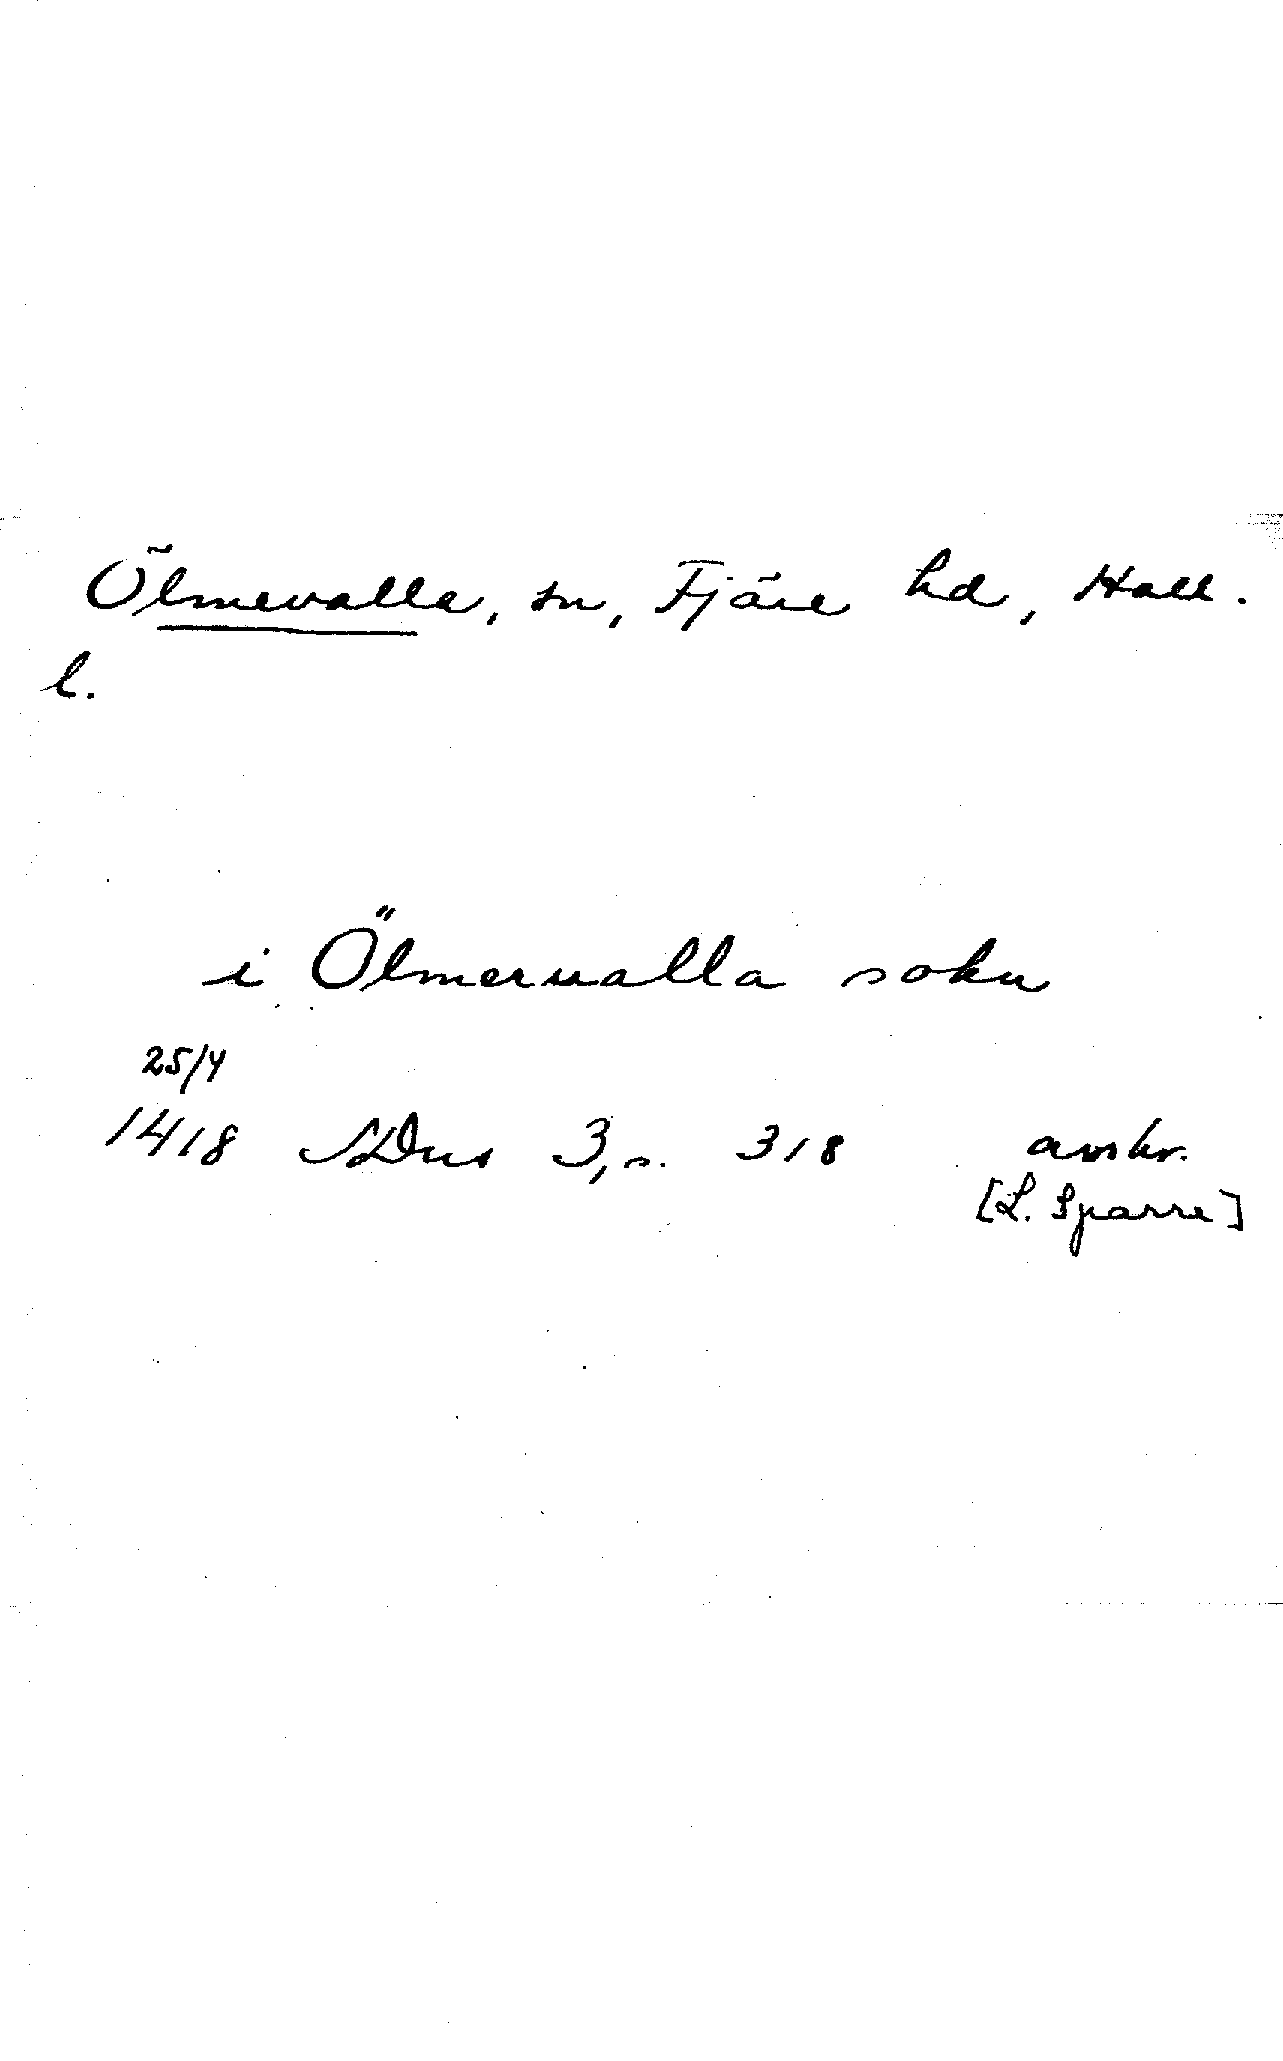 Ölmevalla, sn, Fjäre hd, Hall.
l.
i Ölmerualla sokn
25/4
1418 SDns 3, s. 318 avskr.
[L. Sparre]